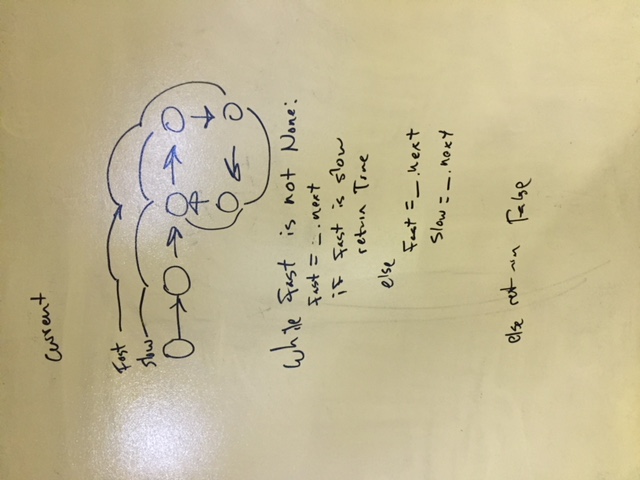 current
Fast
slow
While fast is not None:
fast = _.next
if fast is slow
return True
else
Fast = _.next
Slow = _.next
else return False